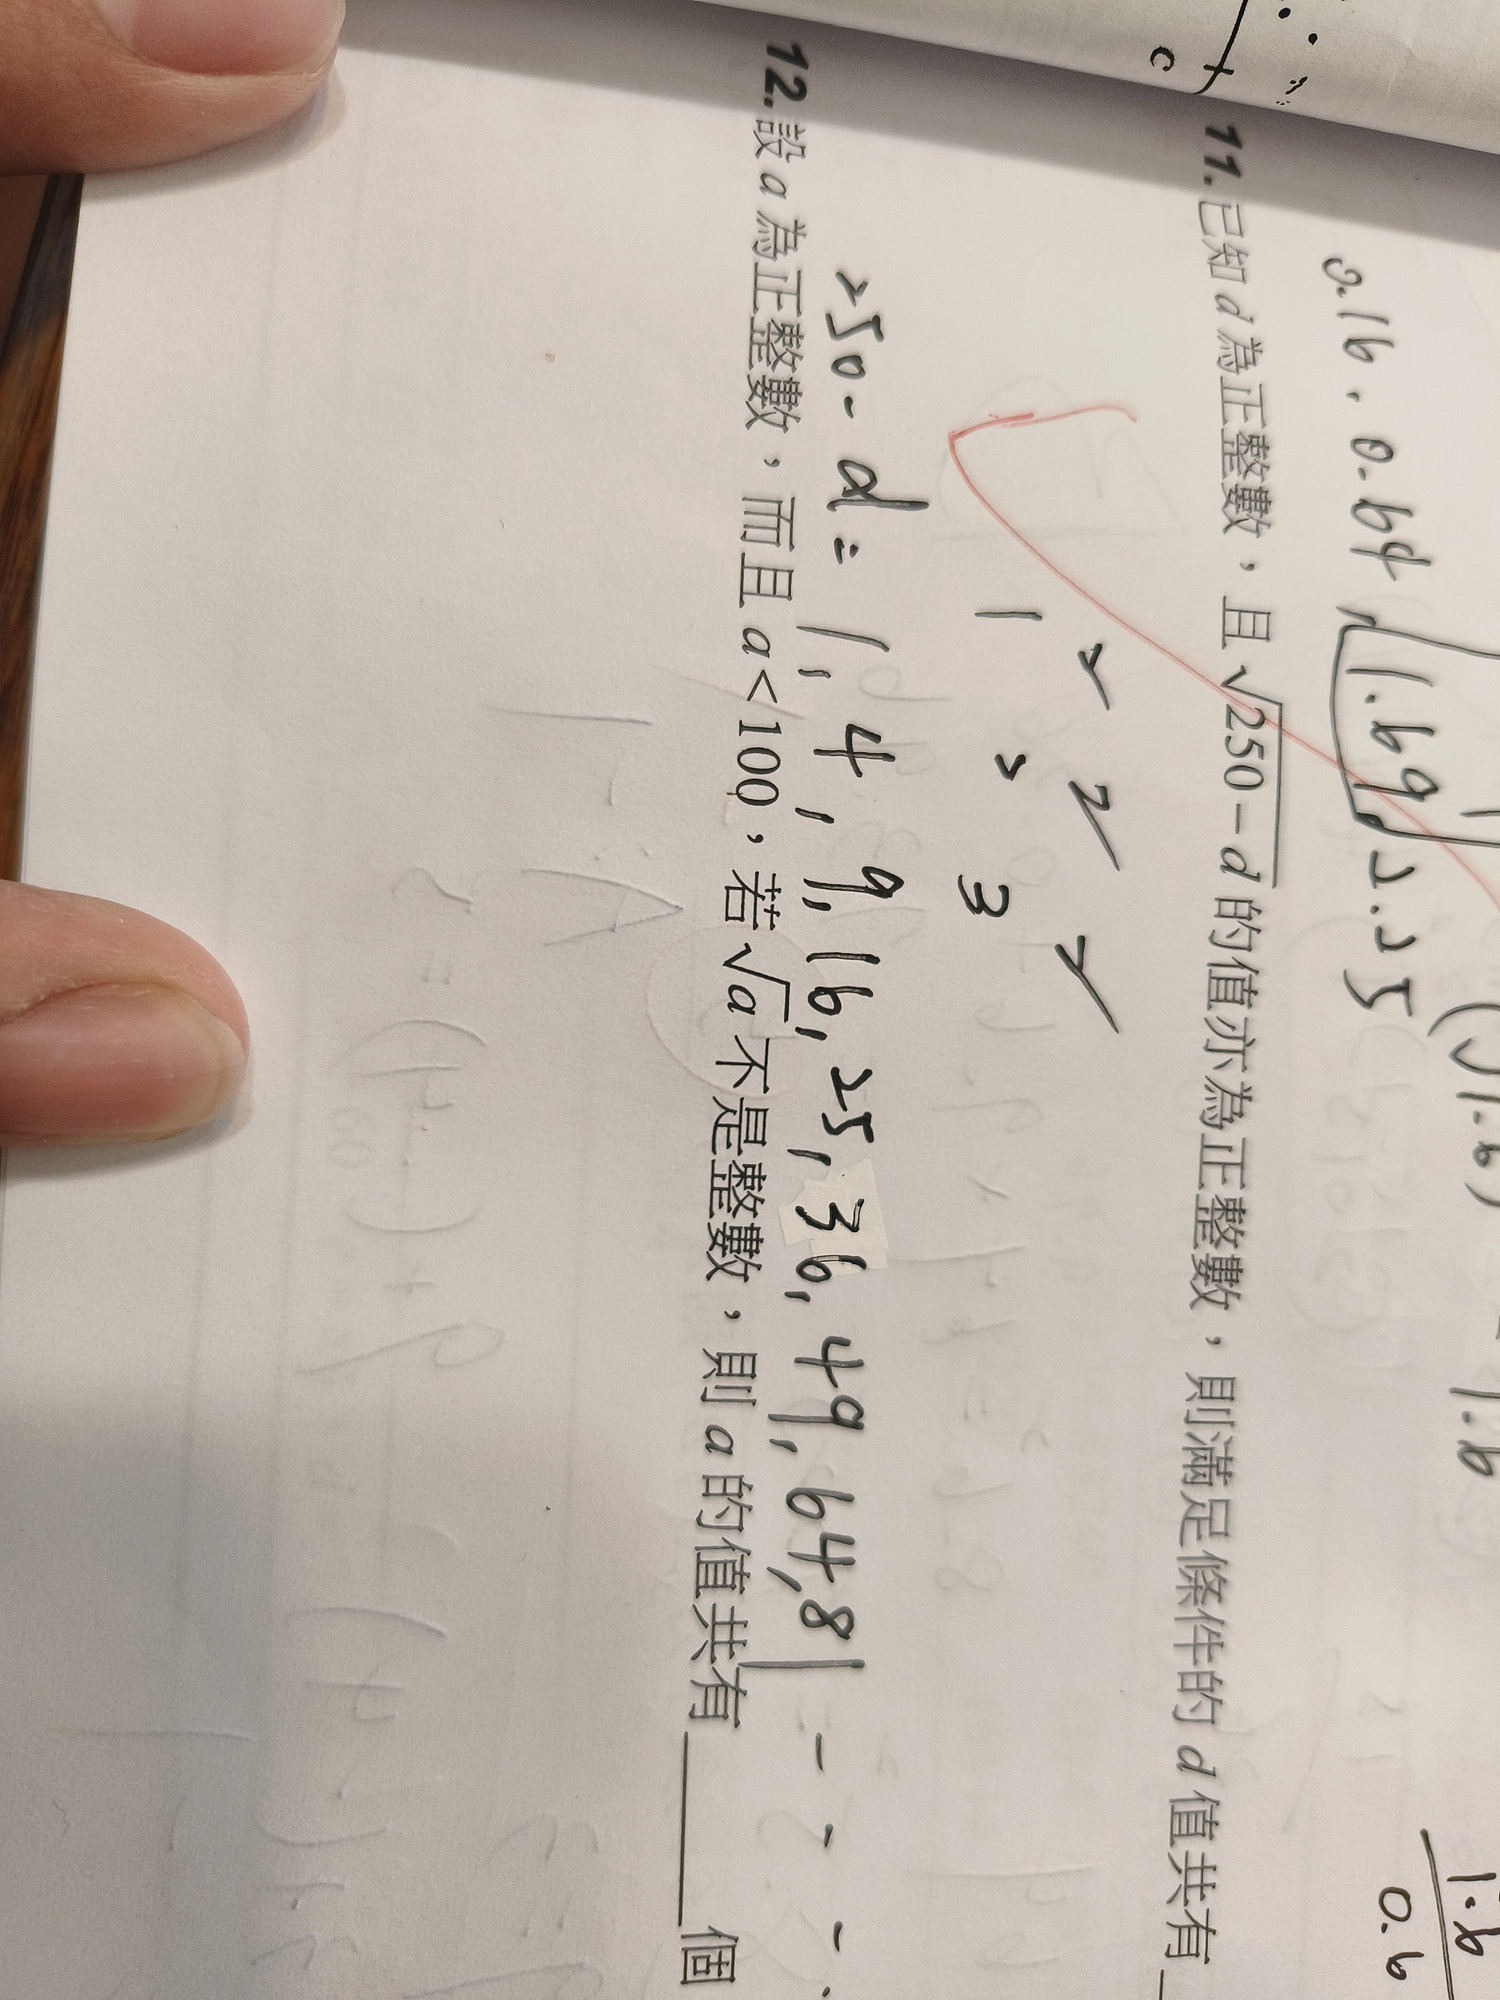 0.16. 0.64 1.69 2.25 (1.6)
1.6
1.6
0.6
11.已知 d 為正整數,且 √250-d 的值亦為正整數,則滿足條件的 d 值共有
1 2 3
250-d = 1, 4, 9, 16, 25, 36, 49, 64, 81 - - -
12.設 a 為正整數,而且 a<100,若 √a 不是整數,則 a 的值共有____個